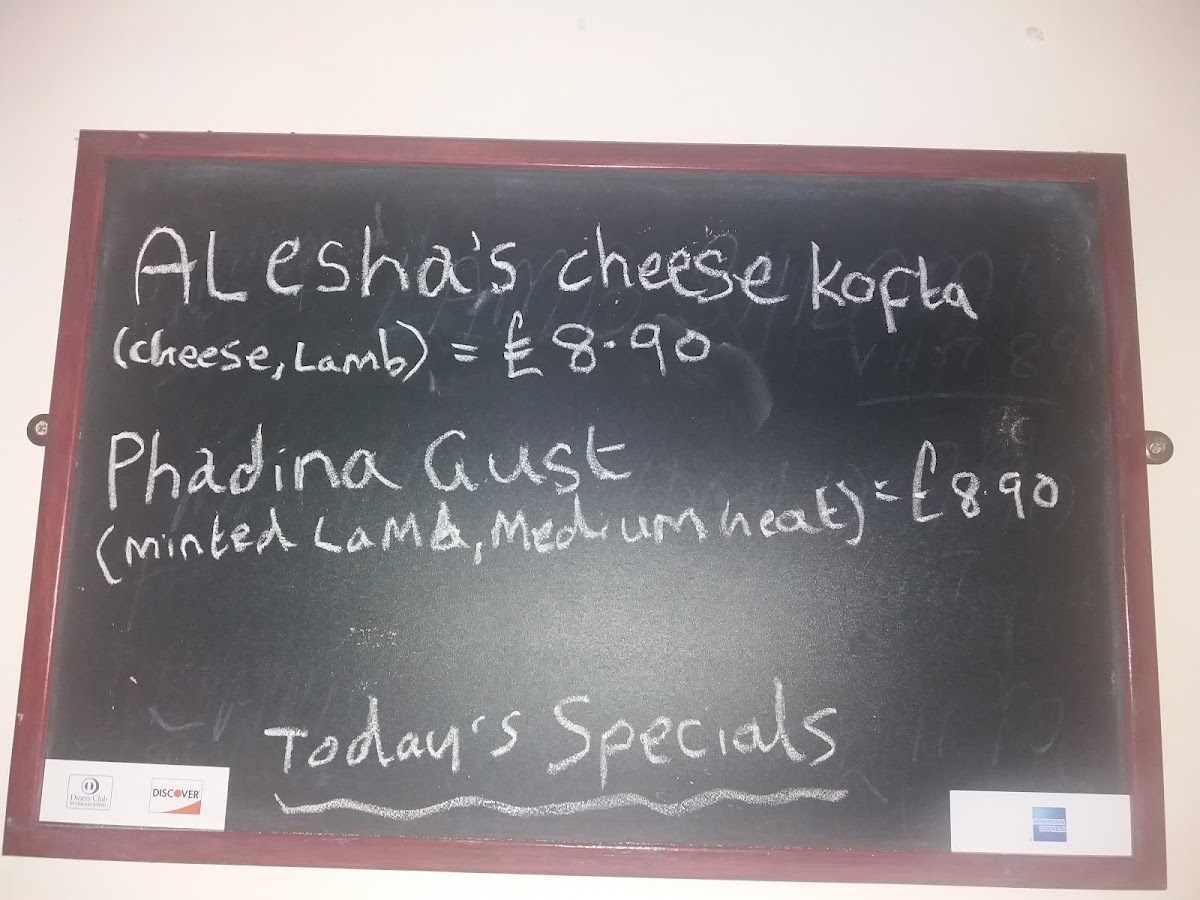 ALesha's cheese kofta
(cheese, Lamb) = £8.90
Phadina Gust
(Minted LaMb, Medium heat) = £8.90
Today's Specials
Diners Club
INTERNATIONAL
DISCOVER
AMERICAN
EXPRESS